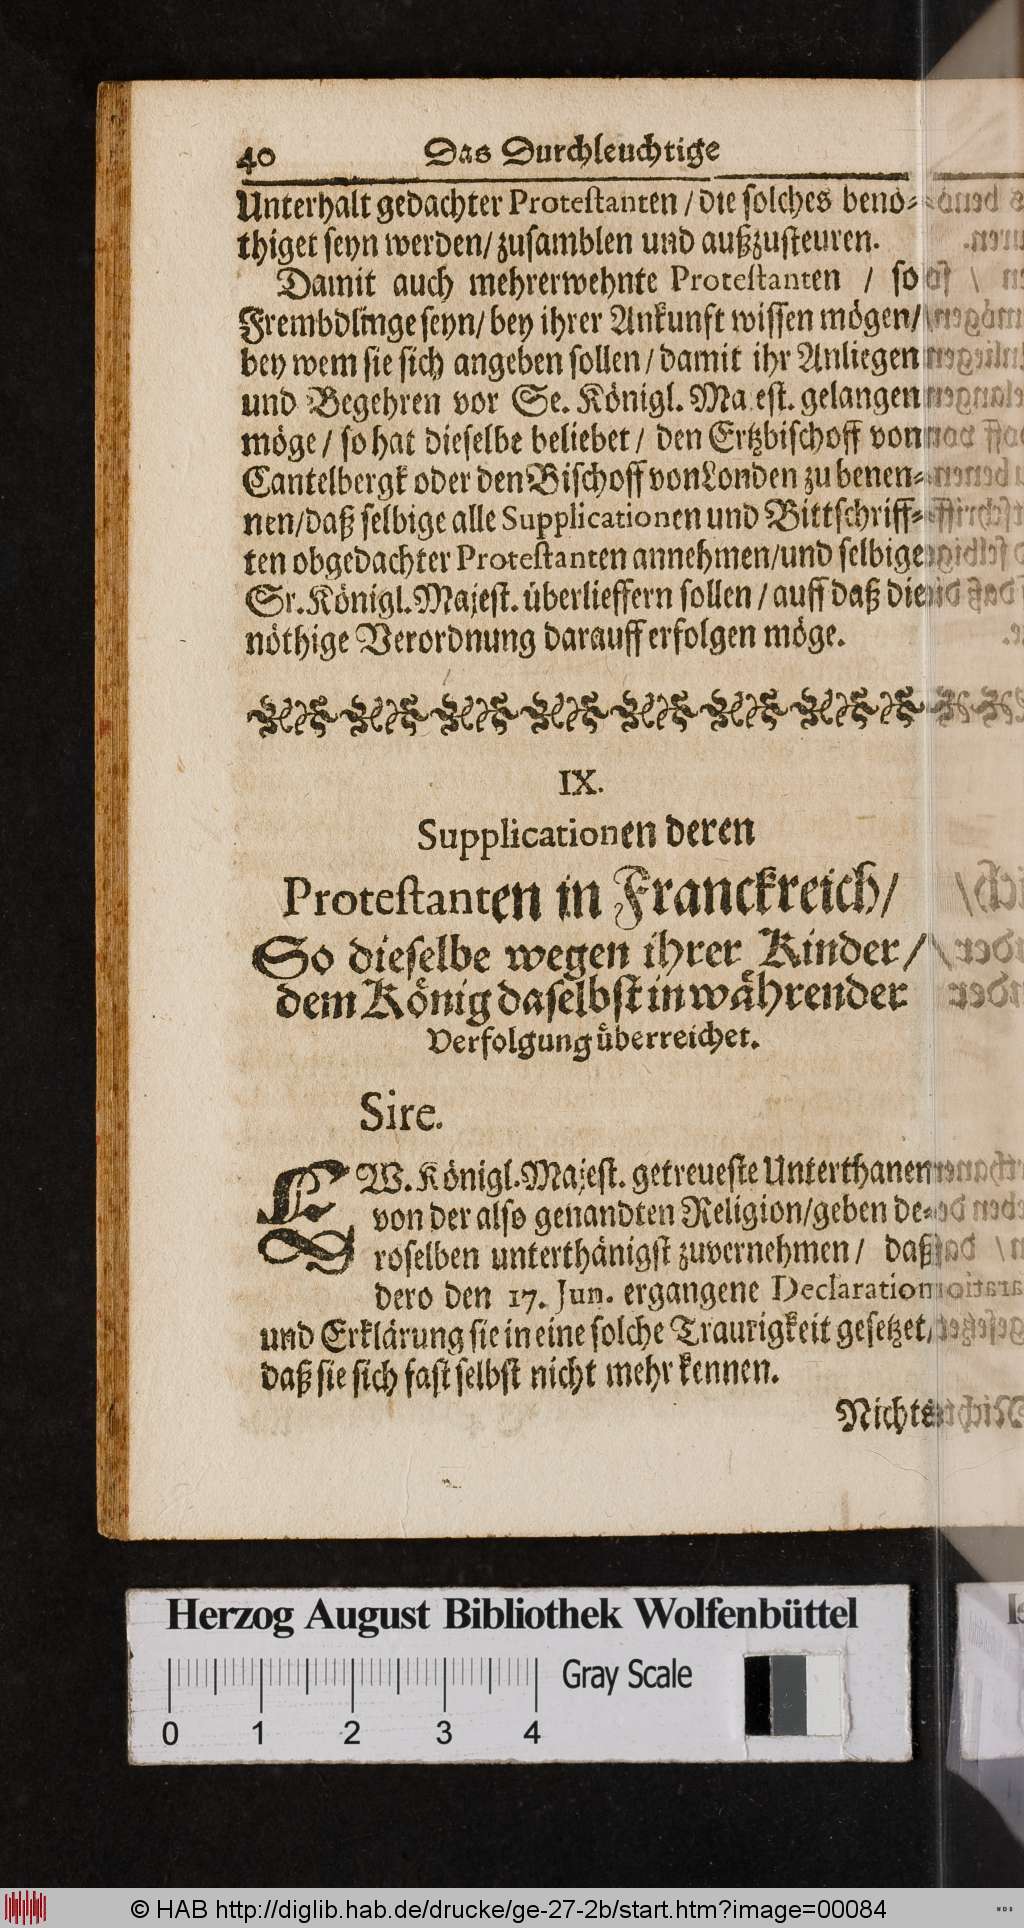 40 Das Durchleuchtige
Unterhalt gedachter Protestanten / die solches benö-
thiget seyn werden / zusamblen und außzusteuren.
Damit auch mehrerwehnte Protestanten / so
Frembdlinge seyn / bey ihrer Ankunft wissen mögen /
bey wem sie sich angeben sollen / damit ihr Anliegen
und Begehren vor Se. Königl. Ma est. gelangen
möge / so hat dieselbe beliebet / den Ertzbischoff von
Cantelbergk oder den Bischoff von Londen zu benen-
nen / daß selbige alle Supplicationen und Bittschriff-
ten obgedachter Protestanten annehmen / und selbige
Sr. Königl. Majest. überlieffern sollen / auff daß die
nöthige Verordnung darauff erfolgen möge.
IX.
Supplicationen deren
Protestanten in Franckreich /
So dieselbe wegen ihrer Kinder /
dem König daselbst in währender
Verfolgung überreichet.
Sire.
EW. Königl. Majest. getreueste Unterthanen
von der also genandten Religion / geben de-
roselben unterthänigst zuvernehmen / daß
dero den 17. Jun. ergangene Declaration
und Erklärung sie in eine solche Traurigkeit gesetzet,
daß sie sich fast selbst nicht mehr kennen.
Nichts
Herzog August Bibliothek Wolfenbüttel
Gray Scale
0 1 2 3 4
© HAB http://diglib.hab.de/drucke/ge-27-2b/start.htm?image=00084